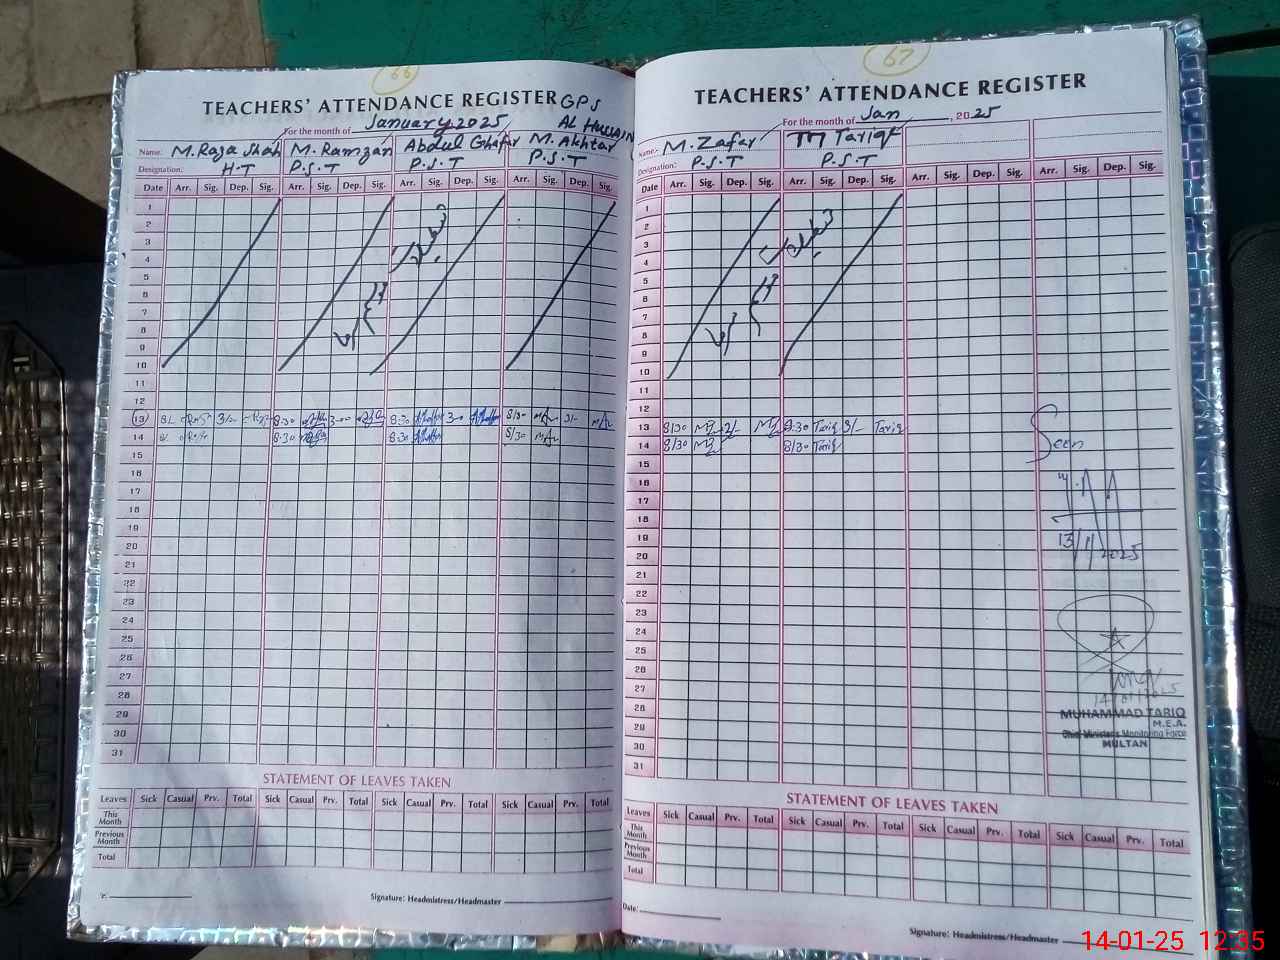 66
TEACHERS' ATTENDANCE REGISTER GPS
AL HUSSAIN
For the month of January 2025
Name: M. Raza Shah M. Ramzan Abdul Ghafir M. Akhtar
Designation: H.T P.S.T P.S.T P.S.T
Date Arr. Sig. Dep. Sig. Arr. Sig. Dep. Sig. Arr. Sig. Dep. Sig. Arr. Sig. Dep. Sig.
1
2
3
4
5
6
7
8
9
10
11
12
13 3/- 8:30 3-00 8:30 3-0 8/30 3/-
14 8:30 8:30 8/30
15
16
17
18
19
20
21
22
23
24
25
26
27
28
29
30
31
STATEMENT OF LEAVES TAKEN
Leaves Sick Casual Prv. Total Sick Casual Prv. Total Sick Casual Prv. Total Sick Casual Prv. Total
This Month
Previous Month
Total
Signature: Headmistress/Headmaster
67
TEACHERS' ATTENDANCE REGISTER
For the month of Jan, 2025
Name:- M. Zafar M Tariq
Designation: P.S.T P.S.T
Date Arr. Sig. Dep. Sig. Arr. Sig. Dep. Sig. Arr. Sig. Dep. Sig. Arr. Sig. Dep. Sig.
1
2
3
4
5
6
7
8
9
10
11
12
13 8/30 3/- 8:30 Tariq 3/- Tariq
14 8/30 8/30 Tariq
15
16
17
18
19
20
21
22
23
24
25
26
27
28
29
30
31
Seen
13/1/2025
14/01/2025
MUHAMMAD TARIQ
M.E.A.
Chief Minister's Monitoring Force
MULTAN
STATEMENT OF LEAVES TAKEN
Leaves Sick Casual Prv. Total Sick Casual Prv. Total Sick Casual Prv. Total Sick Casual Prv. Total
This Month
Previous Month
Total
Date:
Signature: Headmistress/Headmaster
14-01-25 12:35